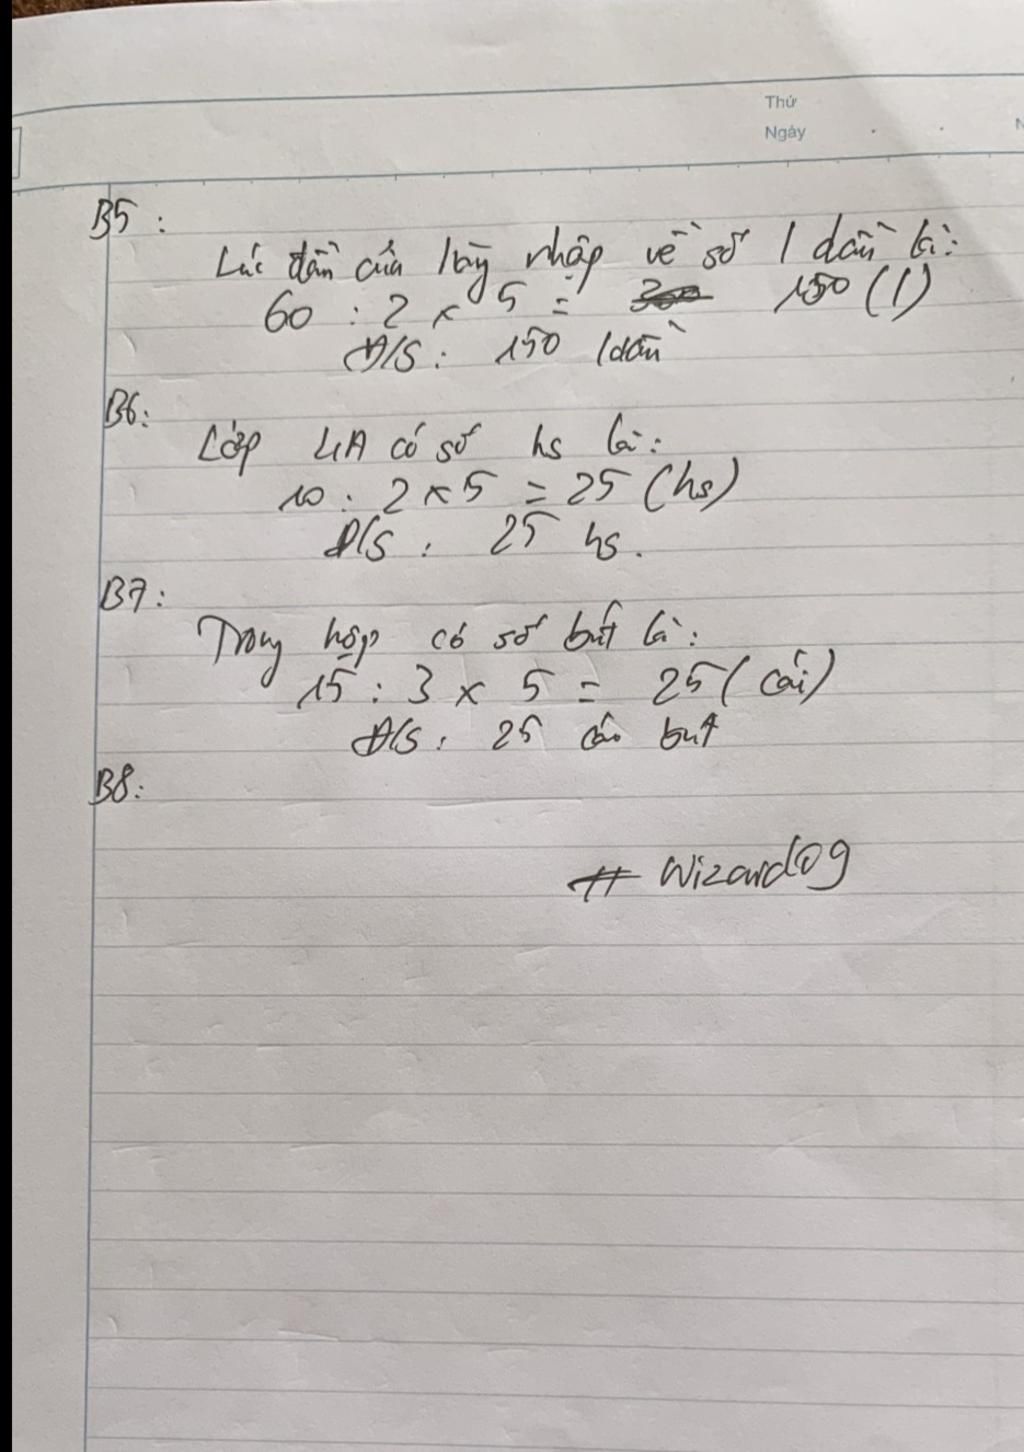 Thứ
Ngày
B5 :
Lúc đầu cửa hàng nhập về số l dầu là:
60 : 2 x 5 = 150 (l)
Đ/S : 150 l dầu
B6:
Lớp 4A có số hs là:
10 : 2 x 5 = 25 (hs)
Đ/S : 25 hs.
B7:
Trong hộp có số bút là:
15 : 3 x 5 = 25 (cái)
Đ/S : 25 cái bút
B8:
# Wizard09